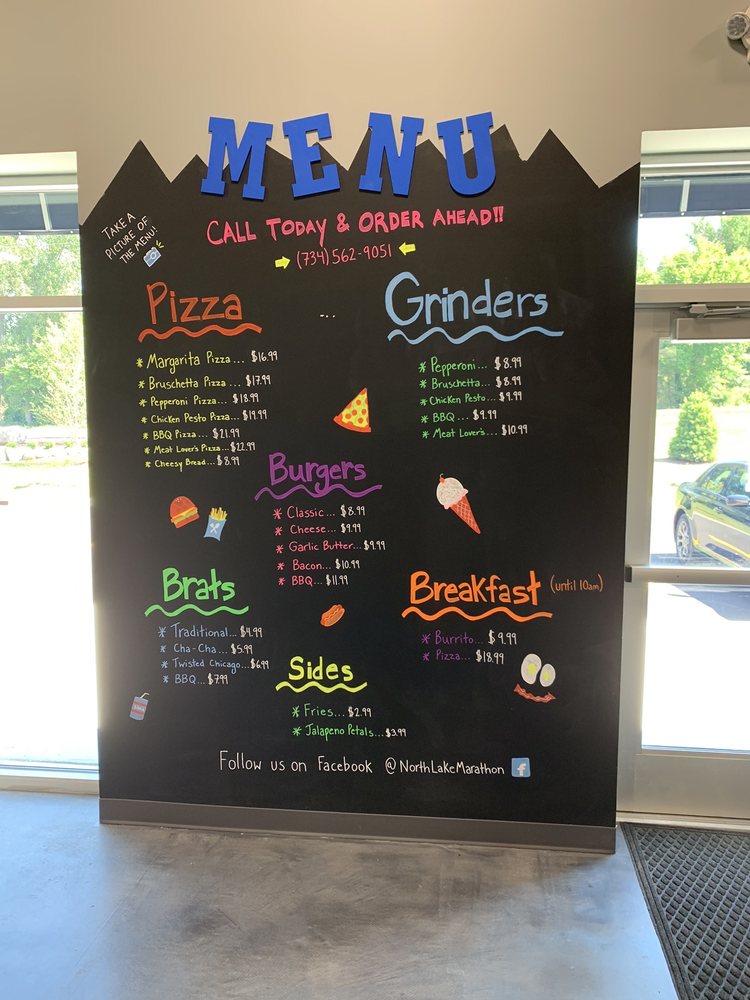 MENU
TAKE A
PICTURE OF
THE MENU!
CALL TODAY & ORDER AHEAD!!
(734) 562-9051
Pizza
* Margarita Pizza... $16.99
* Bruschetta Pizza... $17.99
* Pepperoni Pizza... $18.99
* Chicken Pesto Pizza... $19.99
* BBQ Pizza... $21.99
* Meat Lover's Pizza... $22.99
* Cheesy Bread... $8.99
Grinders
* Pepperoni... $8.99
* Bruschetta... $8.99
* Chicken Pesto... $9.99
* BBQ... $9.99
* Meat Lover's... $10.99
Burgers
* Classic... $8.99
* Cheese... $9.99
* Garlic Butter... $9.99
* Bacon... $10.99
* BBQ... $11.99
Brats
* Traditional... $4.99
* Cha-Cha... $5.99
* Twisted Chicago... $6.99
* BBQ... $7.99
Breakfast (until 10am)
* Burrito... $9.99
* Pizza... $18.99
Sides
* Fries... $2.99
* Jalapeno Petals... $3.99
Follow us on Facebook @NorthLakeMarathon f